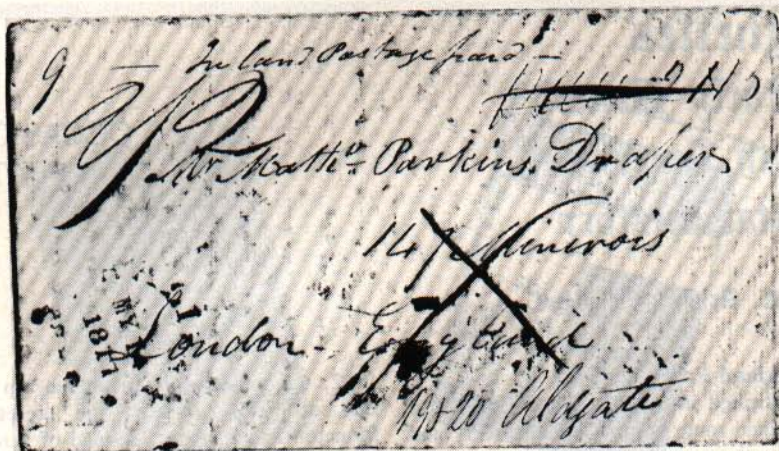 9 — Inland Postage paid —
Mr Matthw Parkins, Draper
147 Minorois
London - England
19 & 20 Aldgate
MY
181